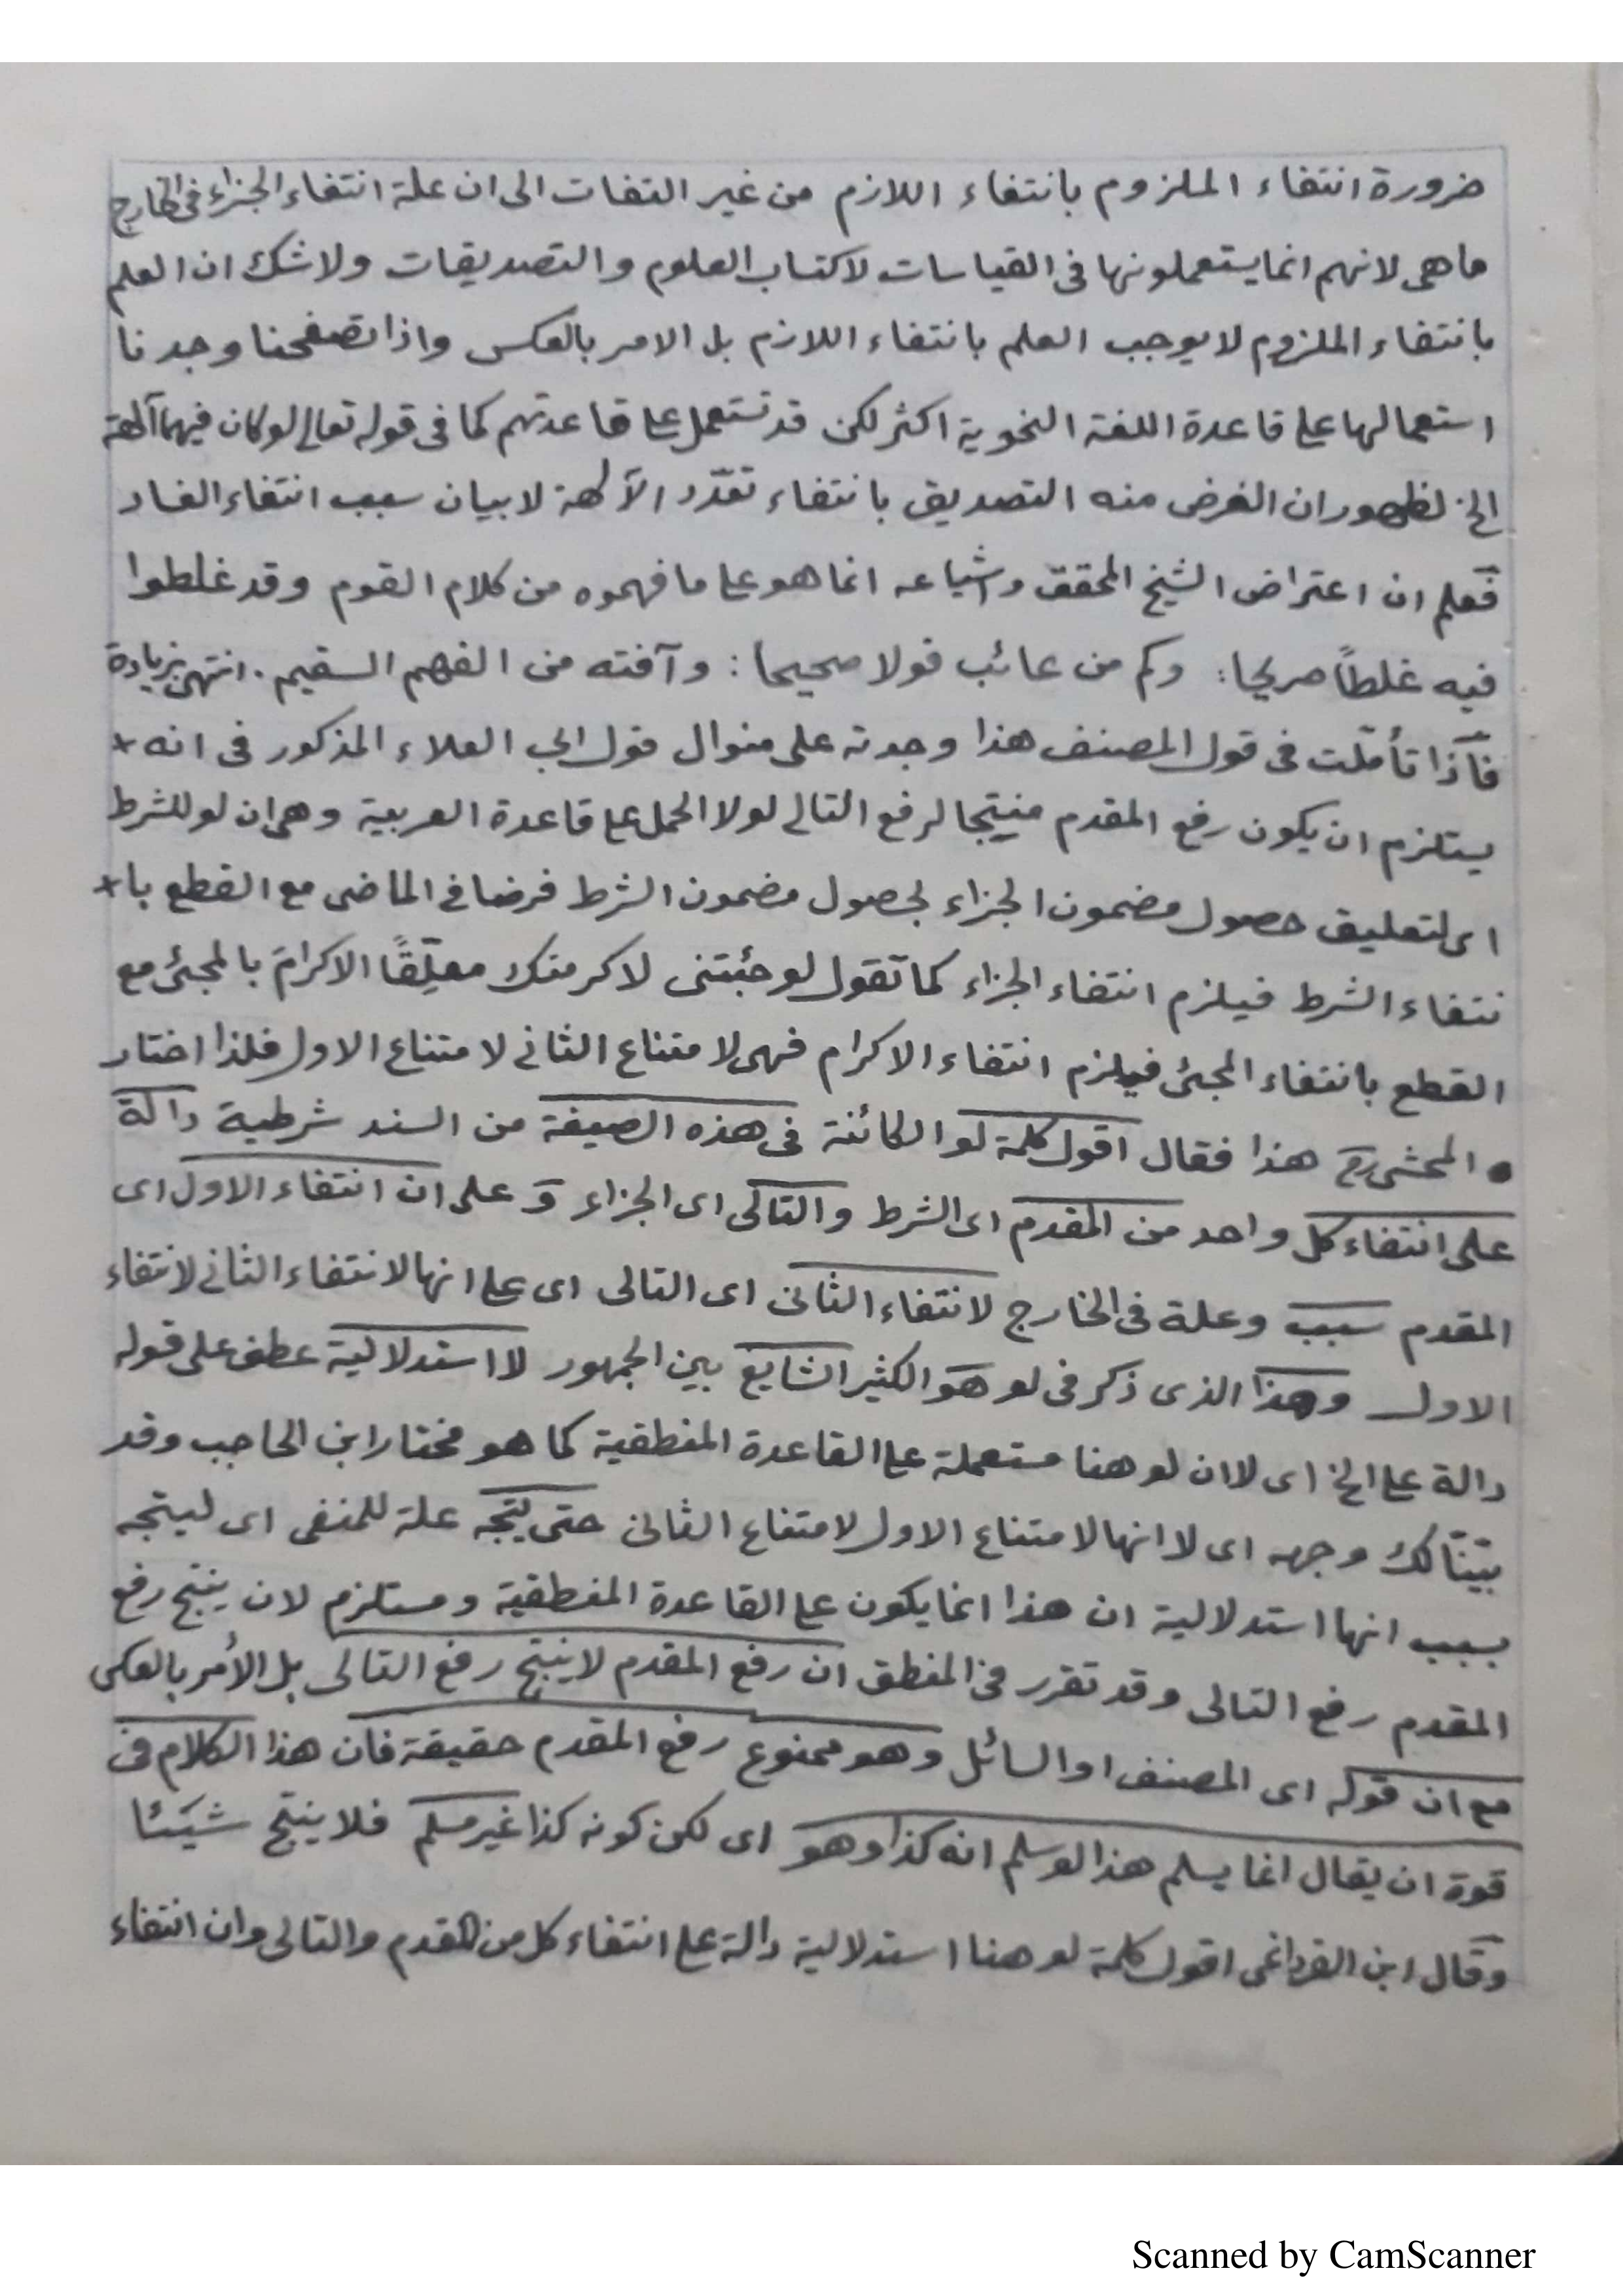 ضرورة انتفاء الملزوم بانتفاء اللازم من غير التفات الى ان علة انتفاء الجزاء فى الخارج
ما هى لانهم انما يستعملونها فى القياسات لاكتساب العلوم والتصديقات ولا شك ان العلم
بانتفاء الملزوم لا يوجب العلم بانتفاء اللازم بل الامر بالعكس واذا تصفحنا وجدنا
استعمالها على قاعدة اللغة النحوية اكثر لكن قد تستعمل على قاعدتهم كما فى قوله تعالى لو كان فيهما آلهة
الخ لظهور ان الغرض منه التصديق بانتفاء تعدّد الآلهة لا بيان سبب انتفاء الفساد
فعلم ان اعتراض الشيخ المحقق واشياعه انما هو على ما فهموه من كلام القوم وقد غلطوا
فيه غلطاً صريحا: وكم من عائب قولا صحيحا: وآفته من الفهم السقيم. انتهى بزيادة
فاذا تأمّلت فى قول المصنف هذا وجدته على منوال قول ابى العلاء المذكور فى انه +
يستلزم ان يكون رفع المقدم منتجا لرفع التالى لولا الحمل على قاعدة العربية وهى ان لو للشرط
اى لتعليق حصول مضمون الجزاء لحصول مضمون الشرط فرضا فى الماضى مع القطع با+
نتفاء الشرط فيلزم انتفاء الجزاء كما تقول لو جئتنى لاكرمتك معلّقًا الاكرامَ بالمجئ مع
القطع بانتفاء المجئ فيلزم انتفاء الاكرام فهى لامتناع الثانى لامتناع الاول فلذا اختار
المحشى هذا فقال اقول كلمة لو الكائنة فى هذه الصيغة من السند شرطية دالة
على انتفاء كل واحد من المقدم اى الشرط والتالى اى الجزاء و على ان انتفاء الاول اى
المقدم سبب وعلة فى الخارج لانتفاء الثانى اى التالى اى على انها لانتفاء الثانى لانتفاء
الاول وهذا الذى ذكر فى لو هو الكثير الشايع بين الجمهور لا استدلالية عطف على قوله
دالة على الخ اى لا ان لو هنا مستعملة على القاعدة المنطقية كما هو مختار ابن الحاجب وقد
بيّنّا لك وجهه اى لا انها لامتناع الاول لامتناع الثانى حتى يتجه علة للمنفى اى ليتجه
بسبب انها استدلالية ان هذا انما يكون على القاعدة المنطقية ومستلزم لان ينتج رفع
المقدم رفع التالى وقد تقرر فى المنطق ان رفع المقدم لا ينتج رفع التالى بل الأمر بالعكس
مع ان قوله اى المصنف او السائل وهو ممنوع رفع المقدم حقيقة فان هذا الكلام فى
قوة ان يقال انما يسلم هذا لو سلم انه كذا وهو اى لكن كونه كذا غير مسلم فلا ينتج شيئا
وقال ابن القرداغى اقول كلمة لو هنا استدلالية دالة على انتفاء كل من المقدم والتالى وان انتفاء
Scanned by CamScanner